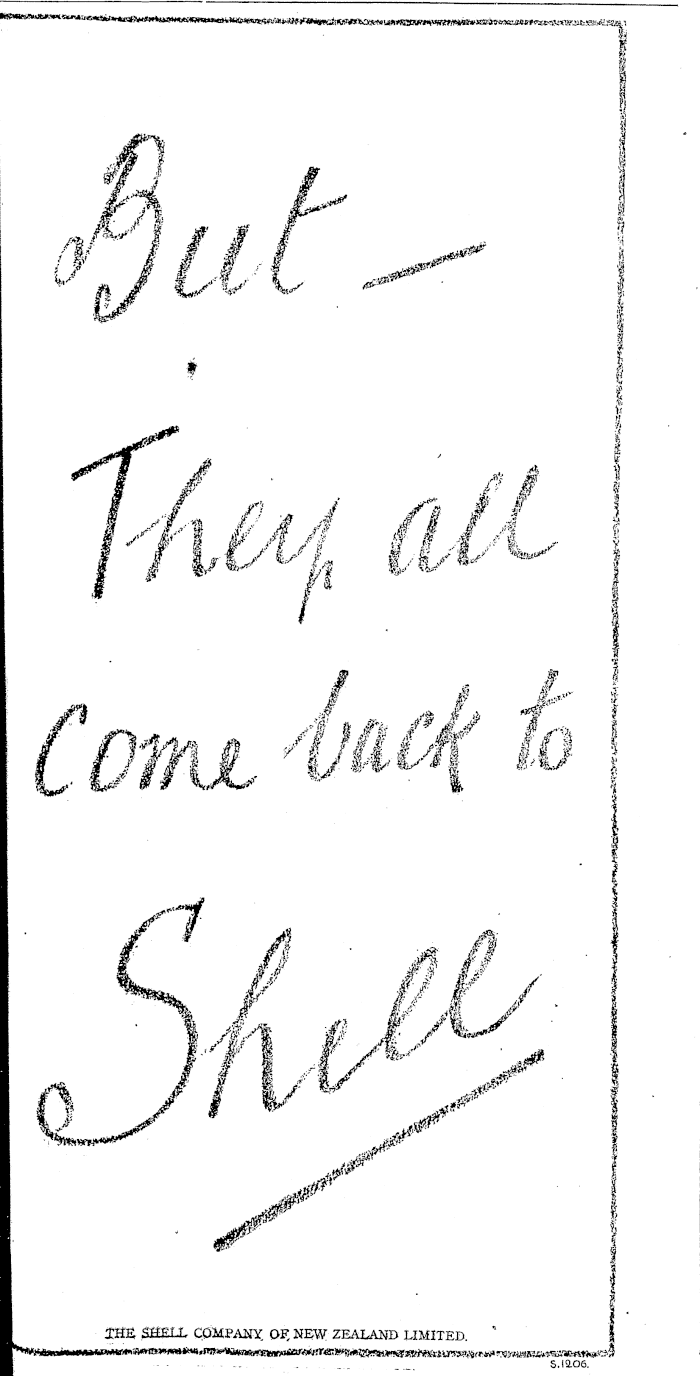 But —
They all
come back to
Shell
THE SHELL COMPANY OF NEW ZEALAND LIMITED.
S.1206.